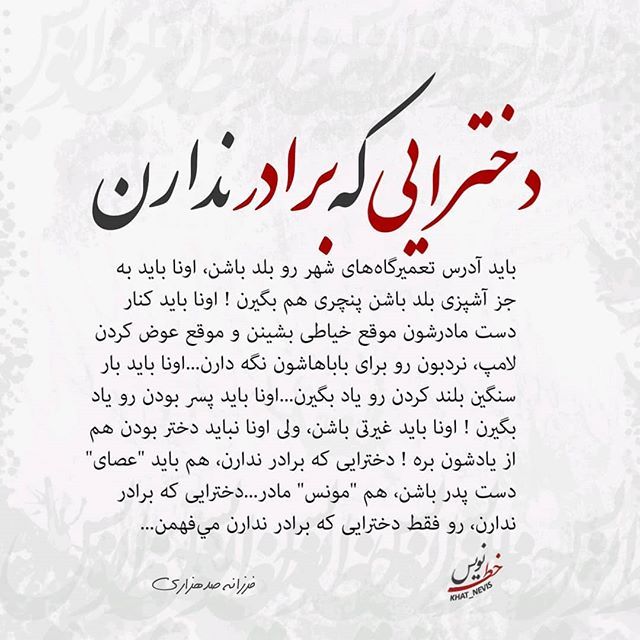 دخترایی که برادر ندارن
باید آدرس تعمیرگاه‌های شهر رو بلد باشن، اونا باید به
جز آشپزی بلد باشن پنچری هم بگیرن ! اونا باید کنار
دست مادرشون موقع خیاطی بشینن و موقع عوض کردن
لامپ، نردبون رو برای باباهاشون نگه دارن...اونا باید بار
سنگین بلند کردن رو یاد بگیرن...اونا باید پسر بودن رو یاد
بگیرن ! اونا باید غیرتی باشن، ولی اونا نباید دختر بودن هم
از یادشون بره ! دخترایی که برادر ندارن، هم باید "عصای"
دست پدر باشن، هم "مونس" مادر...دخترایی که برادر
ندارن، رو فقط دخترایی که برادر ندارن می‌فهمن...
فرزانه صدهزاری
خط نویس
KHAT_NEVIS